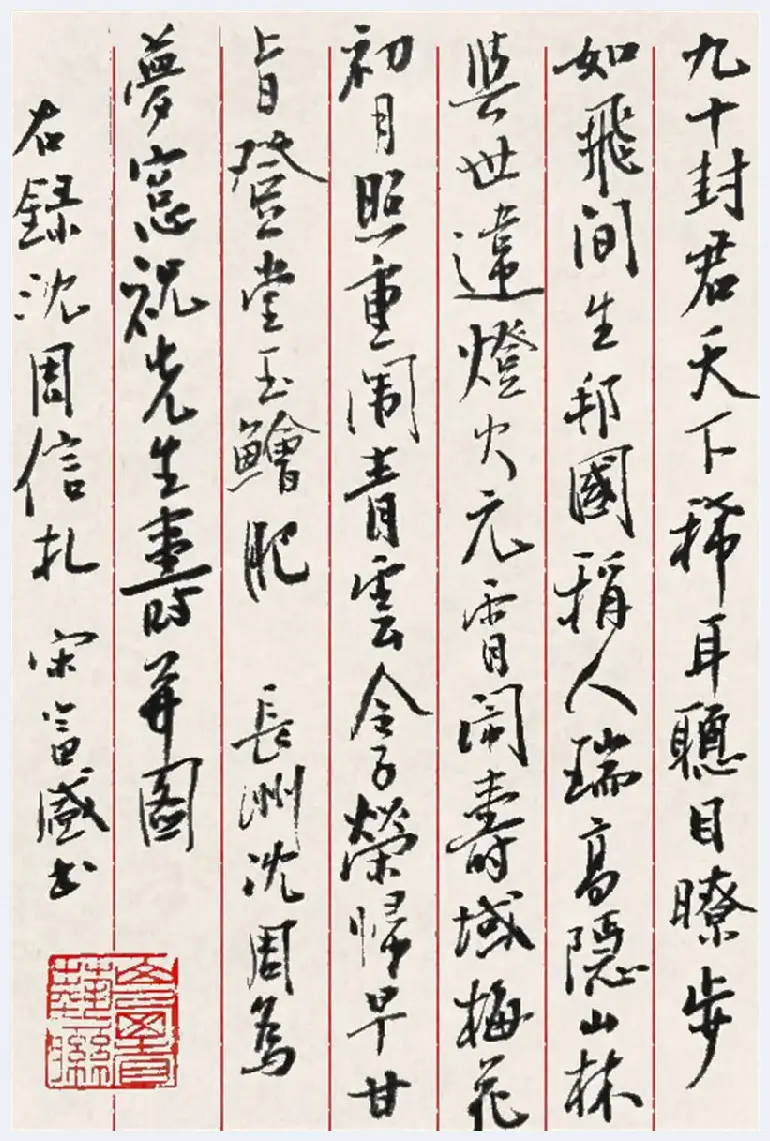 九十封君天下稀耳聰目瞭步
如飛间生邦國稱人瑞高隱山林
與世違燈火元宵鬧壽域梅花
初月照重闱青雲令子榮歸早甘
旨登堂玉鱠肥 長洲沈周為
夢窓祝先生壽詩并图
右録沈周信札 宋富盛书